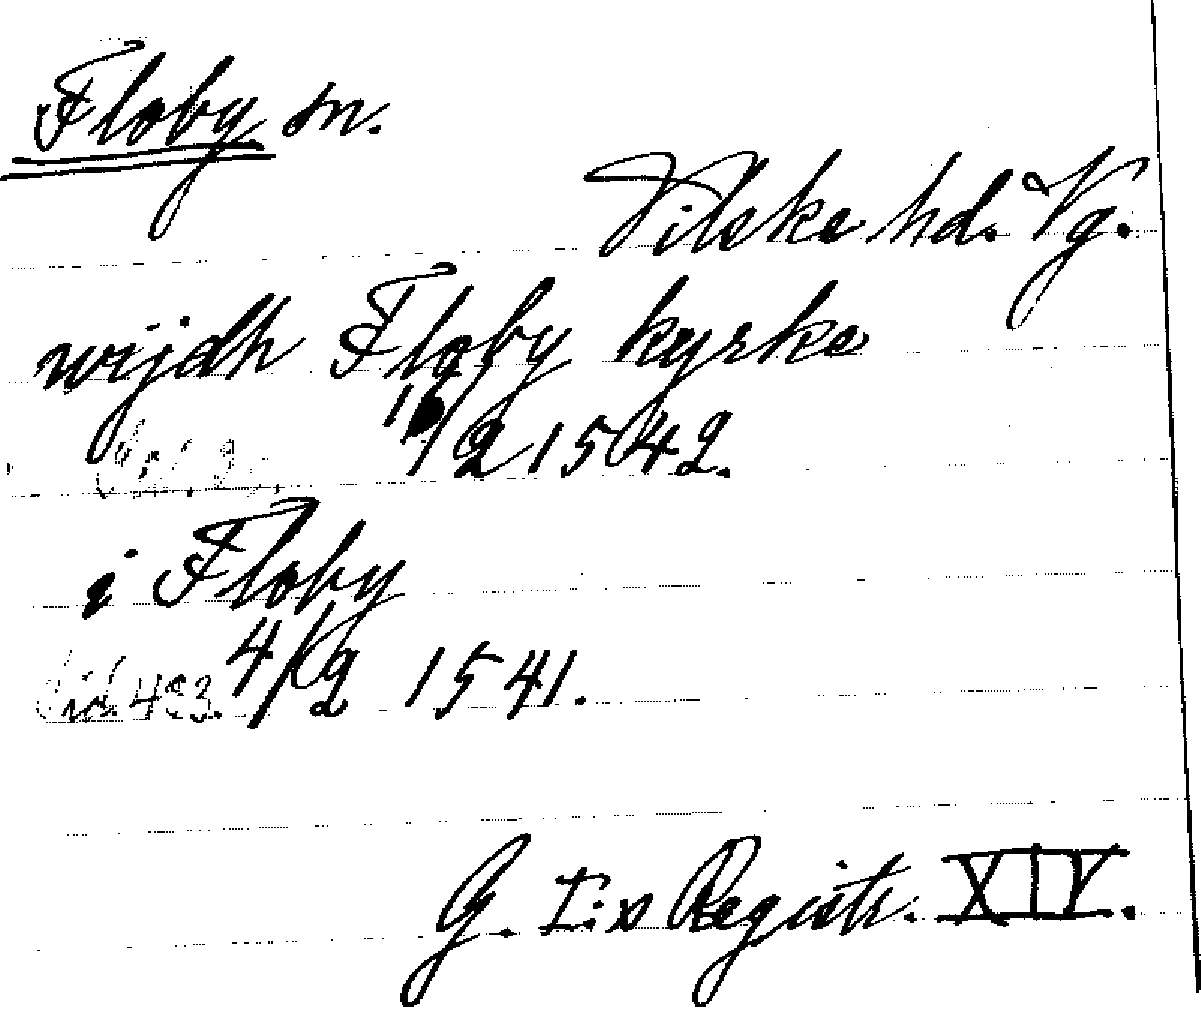 Floby sn.
Vilske hd. Vg.
wijdh Floby kyrke
/2 1542.
i Floby
Sid. 423. 4/2 1541.
G. I:s Registr. XIV.